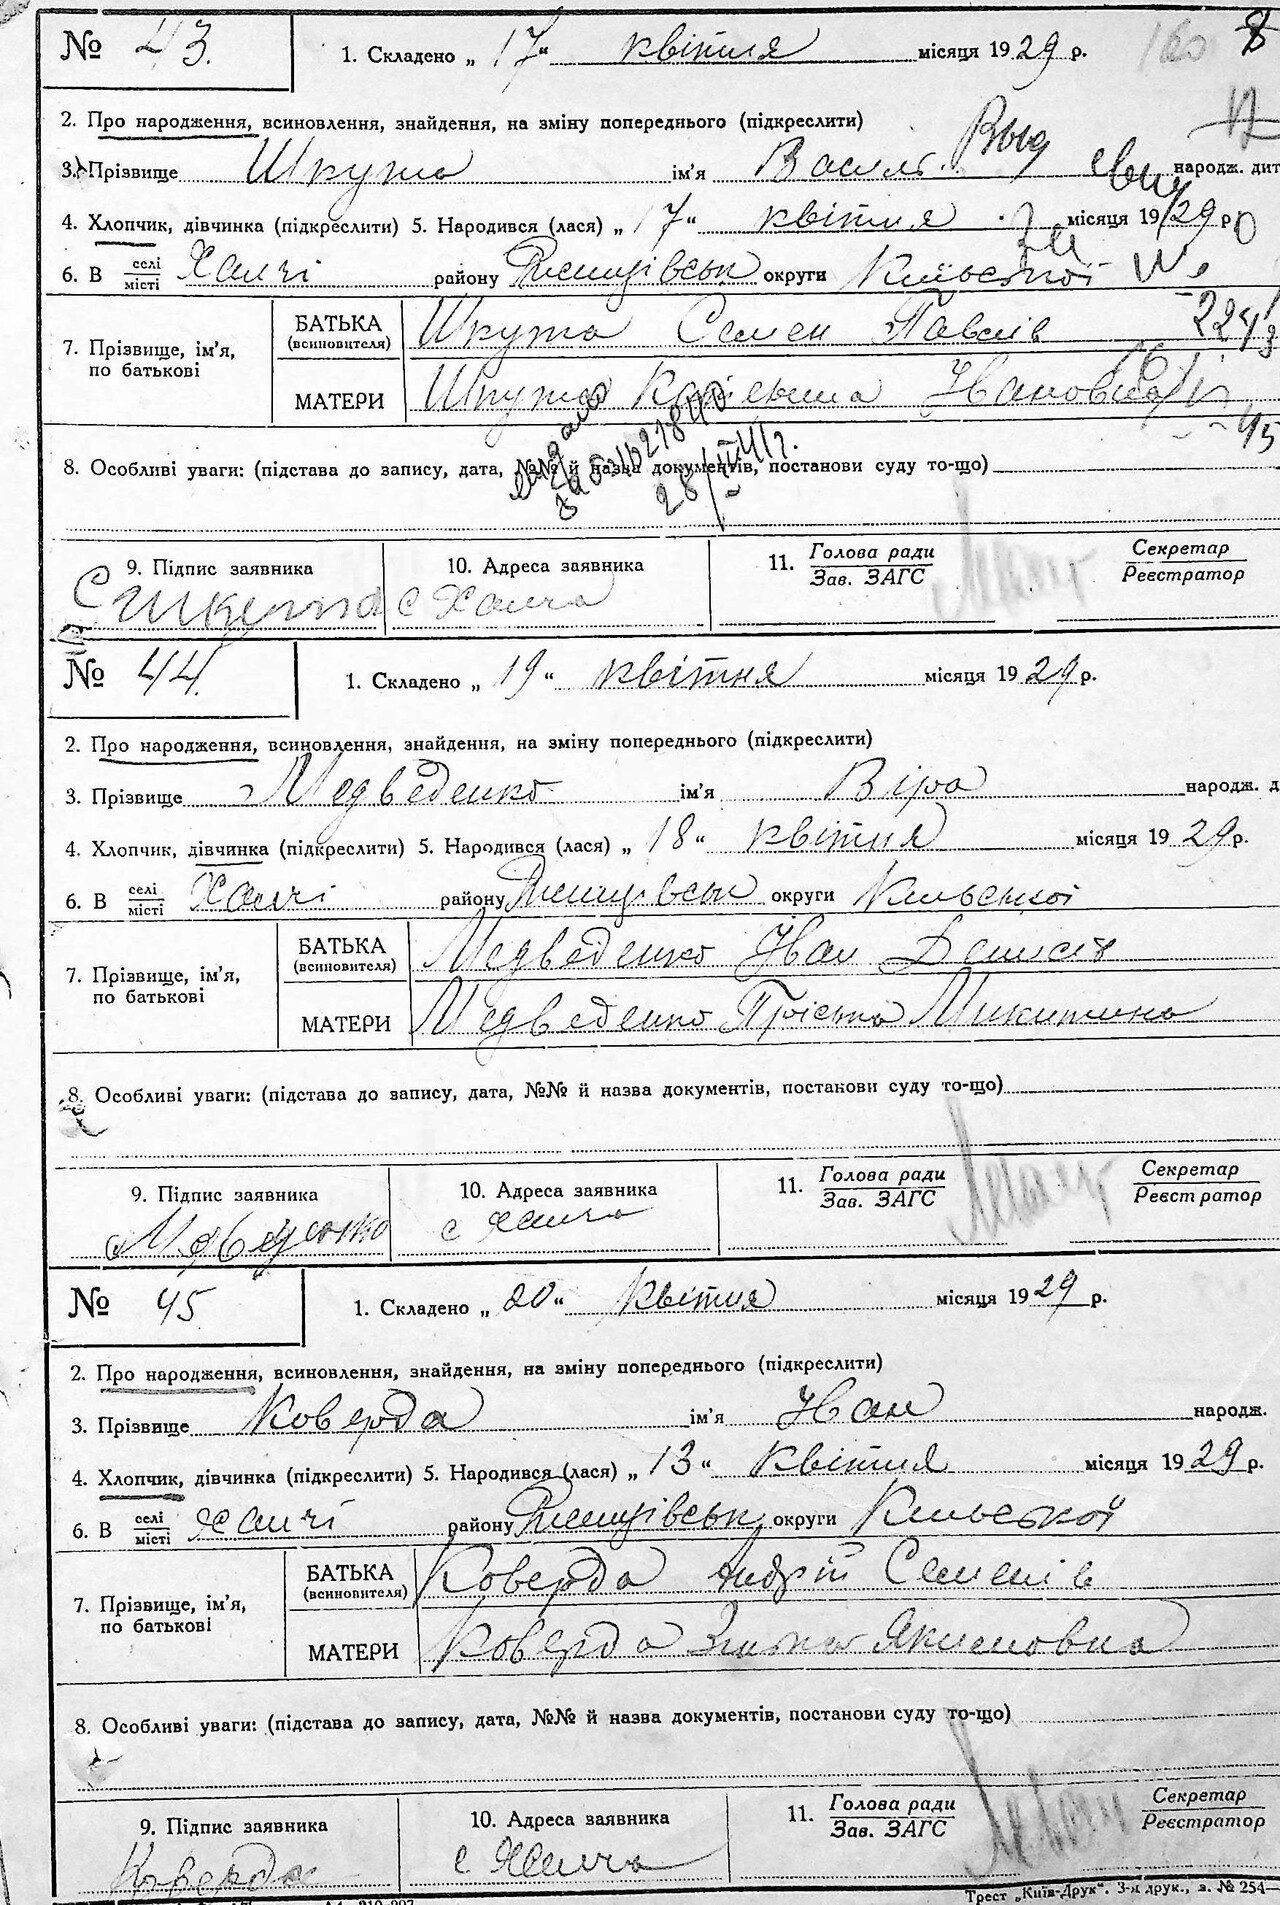 № 43. 1. Складено „ 17 “ квітня місяця 1929 р. 160 8
17
2. Про народження, всиновлення, знайдення, на зміну попереднього (підкреслити)
3. Прізвище Шкута ім'я Василь народж. дит
4. Хлопчик, дівчинка (підкреслити) 5. Народився (лася) „ 17 “ квітня місяця 1929 р.
6. В селі/місті Халчі району Ржищівськ округи Київської
7. Прізвище, ім'я, по батькові
БАТЬКА (всиновителя) Шкута Семен Павлів
МАТЕРИ Шкута Ивановна
8. Особливі уваги: (підстава до запису, дата, №№ й назва документів, постанови суду то-що)
28/III 41 г.
9. Підпис заявника 10. Адреса заявника 11. Голова ради/Зав. ЗАГС Секретар/Реєстратор
с Халча
№ 44. 1. Складено „ 19 “ квітня місяця 1929 р.
2. Про народження, всиновлення, знайдення, на зміну попереднього (підкреслити)
3. Прізвище Медведенко ім'я Віра народж. д
4. Хлопчик, дівчинка (підкреслити) 5. Народився (лася) „ 18 “ квітня місяця 1929 р.
6. В селі/місті Халчі району Ржищівськ округи Київської
7. Прізвище, ім'я, по батькові
БАТЬКА (всиновителя) Медведенко Иван Денисів
МАТЕРИ Медведенко Пріська Микитина
8. Особливі уваги: (підстава до запису, дата, №№ й назва документів, постанови суду то-що)
9. Підпис заявника 10. Адреса заявника 11. Голова ради/Зав. ЗАГС Секретар/Реєстратор
с Халча
№ 45 1. Складено „ 20 “ квітня місяця 1929 р.
2. Про народження, всиновлення, знайдення, на зміну попереднього (підкреслити)
3. Прізвище Коверда ім'я Иван народж.
4. Хлопчик, дівчинка (підкреслити) 5. Народився (лася) „ 13 “ квітня місяця 1929 р.
6. В селі/місті Халчі району Ржищівськ округи Київської
7. Прізвище, ім'я, по батькові
БАТЬКА (всиновителя) Коверда Андрій Семенів
МАТЕРИ Коверда Зінька Якимовна
8. Особливі уваги: (підстава до запису, дата, №№ й назва документів, постанови суду то-що)
9. Підпис заявника 10. Адреса заявника 11. Голова ради/Зав. ЗАГС Секретар/Реєстратор
Коверда с Халча
Трест „Київ-Друк“. 3-я друк., з. № 254—